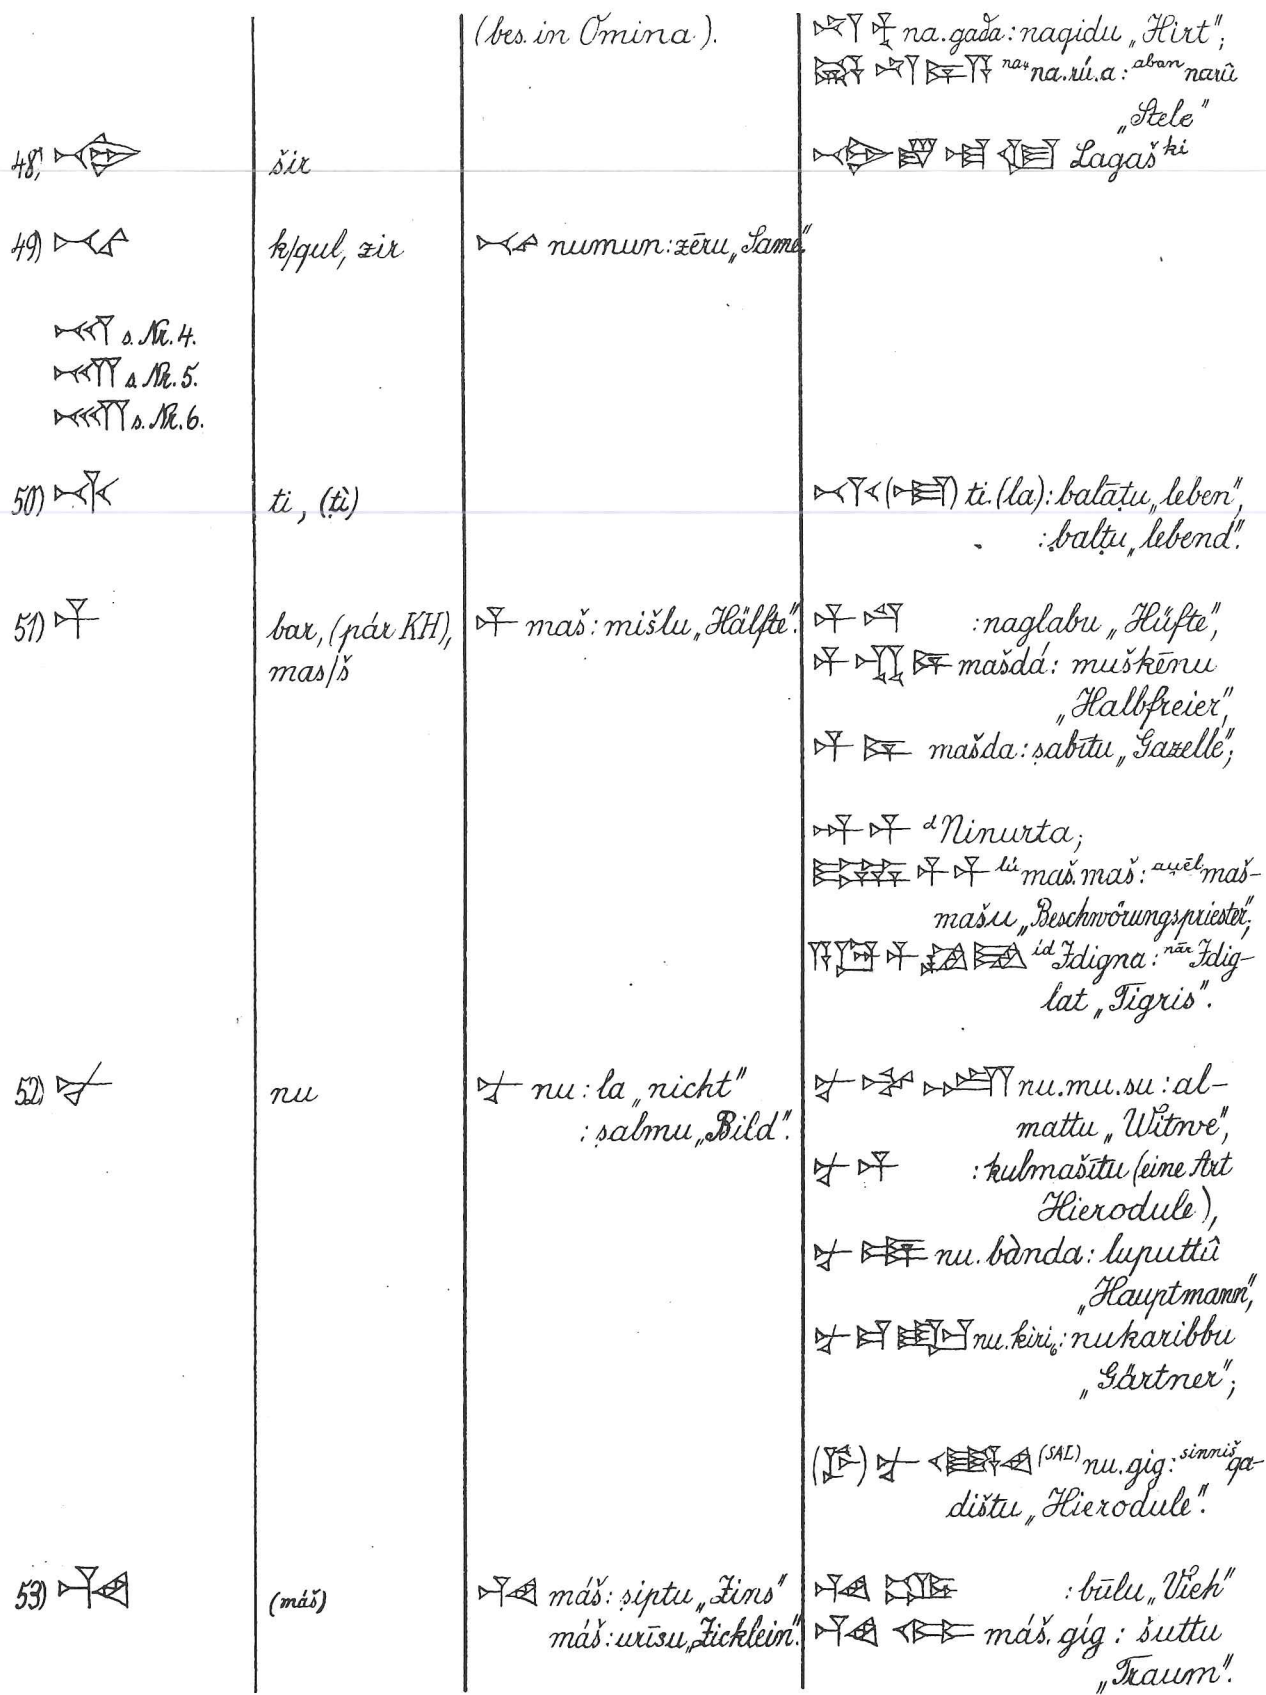 (bes. in Omina). na.gada: nāqidu „Hirt";
na₄na.rú.a: abannarû
„Stele"
48) šir Lagaš ki
49) k/qul, zir numun: zēru „Same".
s. Nr. 4.
s. Nr. 5.
s. Nr. 6.
50) ti, (ṭì) ti.(la): balāṭu „leben",
: balṭu „lebend".
51) bar, (pár KH), maš: mišlu „Hälfte". : naglabu „Hüfte",
mas/š mašdá: muškēnu
„Halbfreier",
mašda: ṣabītu „Gazelle";
dNinurta;
lúmaš.maš: au̯ēlmaš-
mašu „Beschwörungspriester";
ídIdigna: nārIdig-
lat „Tigris".
52) nu nu: la „nicht" nu.mu.su: al-
: ṣalmu „Bild". mattu „Witwe",
: kulmašītu (eine Art
Hierodule),
nu.bànda: luputtû
„Hauptmann",
nu.kiri₆: nukaribbu
„Gärtner";
(SAL)nu.gig: sinnišqa-
dištu „Hierodule".
53) (máš) máš: ṣiptu „Zins" : būlu „Vieh"
máš: urīṣu „Zicklein". máš.gíg: šuttu
„Traum".